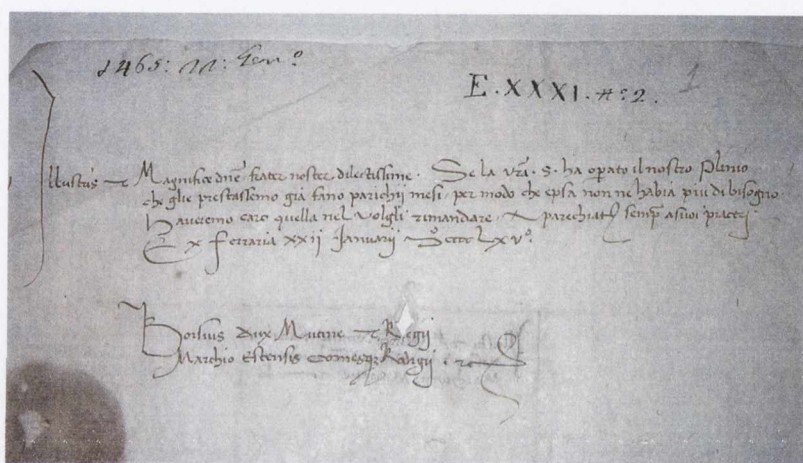 1465: 22: Gen.º
E.XXXI.nº2.
1
Illustris et Magnifice dne frater noster dilectissime. Se la vra. S. ha opato il nostro Plinio
che glie prestassemo già fano parichii mesi per modo che epsa non ne habia piu di bisogno
haveremo caro quella nel volgli rimandare. Aparechiati semp asuoi piaceri
Ex Ferraria xxij Januarij lxvº.
Borsius dux Mutine et Regij
Marchio Estensis Comesqz Rodigij. etc